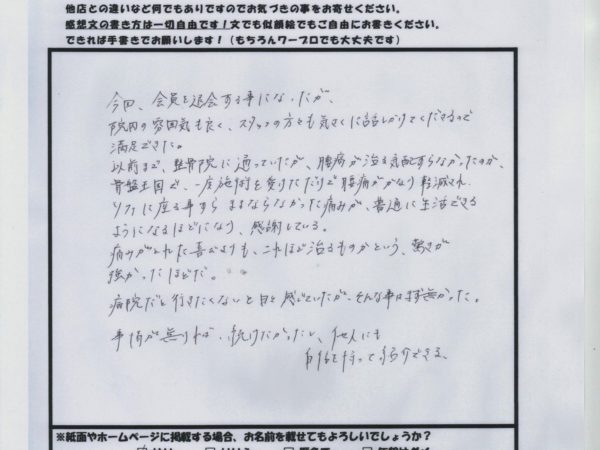 他店との違いなど何でもありですのでお気づきの事をお寄せください。
感想文の書き方は一切自由です!文でも似顔絵でもご自由にお書きください。
できれば手書きでお願いします!(もちろんワープロでも大丈夫です)
今回、会員を退会する事になったが、
院内の雰囲気も良く、スタッフの方々も気さくに話しかけてくださるので
満足できた。
以前まで、整骨院に通っていたが、腰痛が治る気配すらなかったのが、
骨盤王国で、一度施術を受けただけで腰痛がかなり軽減され
ソファに座る事すらままならなかった痛みが、普通に生活できる
ようになるほどになり、感謝している。
痛みがとれた喜びよりも、これほど治るものかという、驚きが
強かったほどだ。
病院だと行きたくないと日々感じていたが、そんな事はまず無かった。
事情が無ければ、続けたかったし、他人にも
自信を持って紹介できる。
※紙面やホームページに掲載する場合、お名前を載せてもよろしいでしょうか?